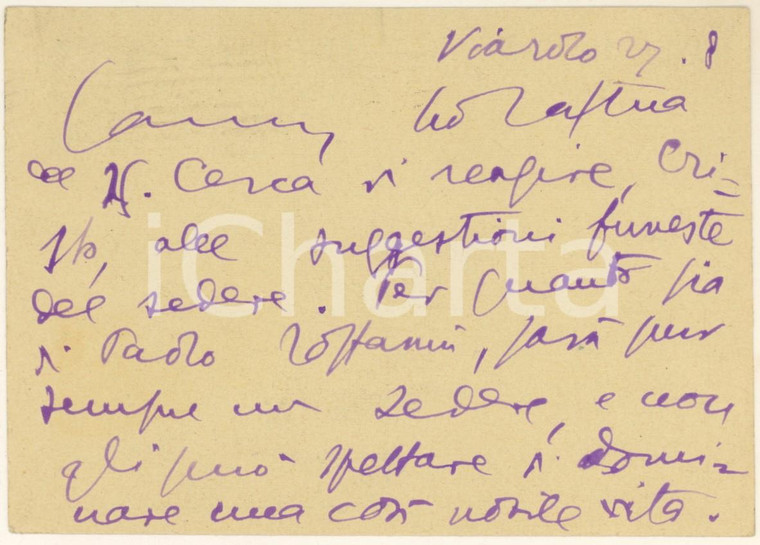 Viarolo 27.8
ho la tua
al N. Cerca di reagire, Cri-
sto, alle suggestioni funeste
del sedere. Per quanto sia
di Paolo, sarà pur
sempre un sedere, e non
gli può spettare di domi-
nare una così nobile vita.
iCharta